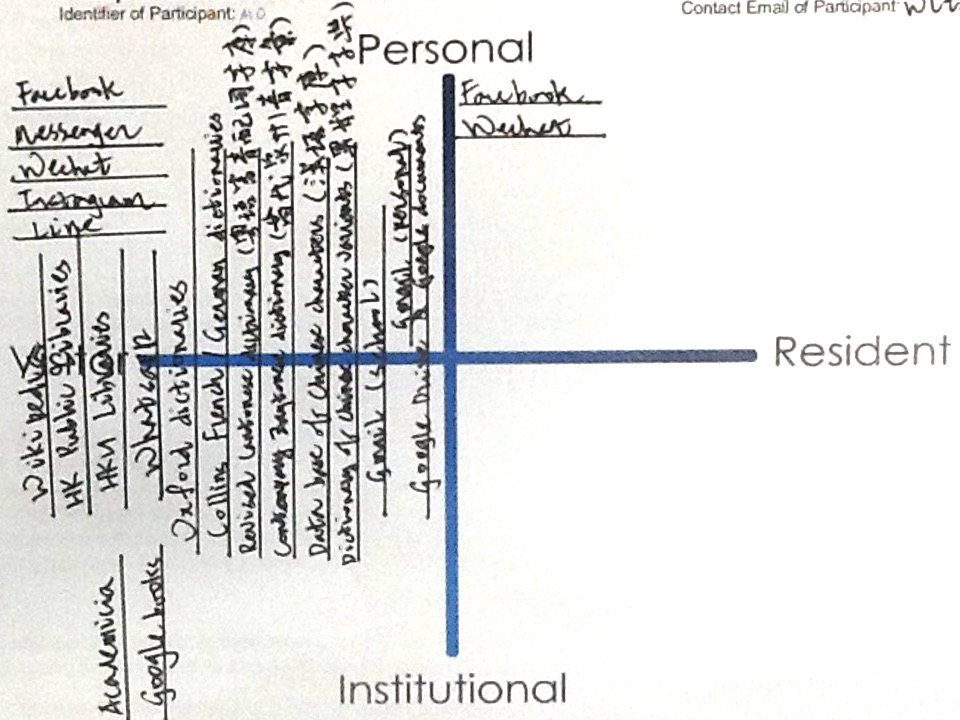 Identifier of Participant:
Contact Email of Participant:
Personal
Facebook
Messenger
Wechat
Instagram
Line
Facebook
Wechat
Visitor
Resident
Wikipedia
HK Public Libraries
HKU Libraries
Whatsapp
Oxford dictionaries
Collins French / German dictionaries
Revised Cantonese dictionary
dictionary
Data base of Chinese characters
Dictionary of Chinese character variants
Gmail (school)
Gmail (personal)
Google Drive & Google documents
Academicia
Google books
Institutional